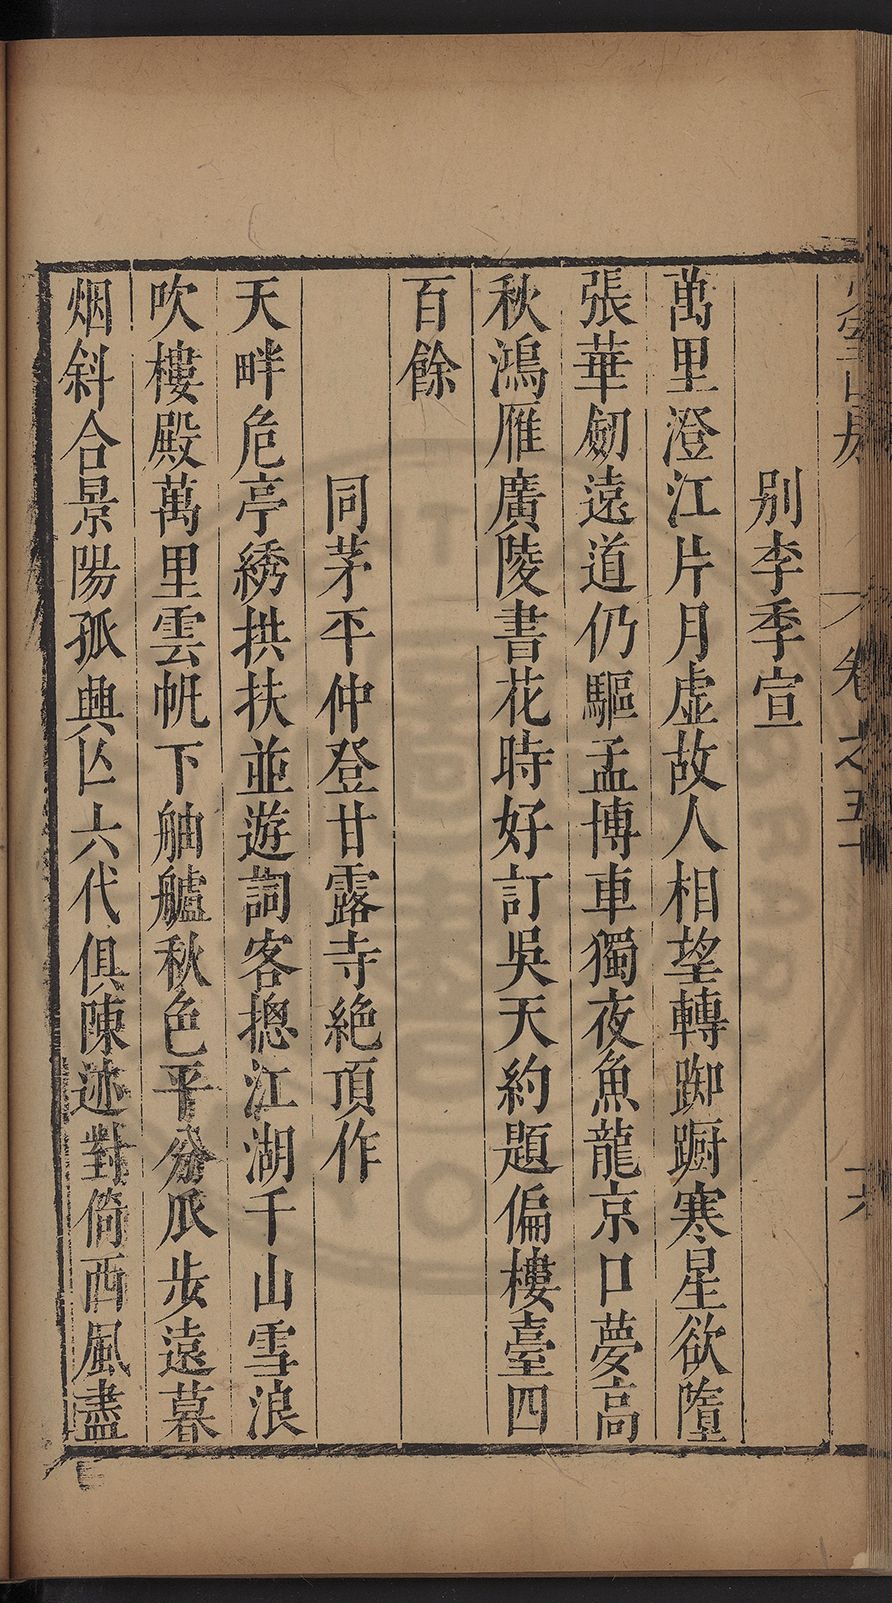 卷之五
别李季宣
萬里澄江片月虚故人相望轉踟蹰寒星欲墮
張華劒遠道仍驅孟博車獨夜魚龍京口夢高
秋鴻雁廣陵書花時好訂吳天約題偏樓臺四
百餘
同茅平仲登甘露寺絶頂作
天畔危亭綉拱扶並遊詞客揔江湖千山雪浪
吹樓殿萬里雲帆下舳艫秋色平分瓜步遠暮
烟斜合景陽孤興亾六代俱陳迹對倚西風盡